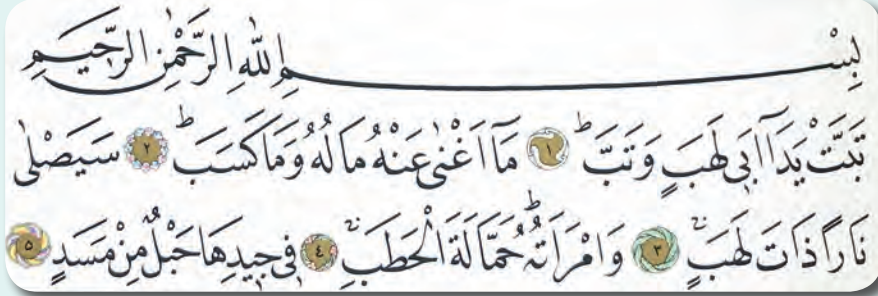 بِسْمِ اللّٰهِ الرَّحْمٰنِ الرَّحِيمِ
تَبَّتْ يَدَٓا اَبٖي لَهَبٍ وَتَبَّؕ ﴿١﴾ مَٓا اَغْنٰى عَنْهُ مَالُهُ وَمَا كَسَبَؕ ﴿٢﴾ سَيَصْلٰى
نَارًا ذَاتَ لَهَبٍۚ ﴿٣﴾ وَامْرَاَتُهُؕ حَمَّالَةَ الْحَطَبِۚ ﴿٤﴾ فٖي جٖيدِهَا حَبْلٌ مِنْ مَسَدٍ ﴿٥﴾